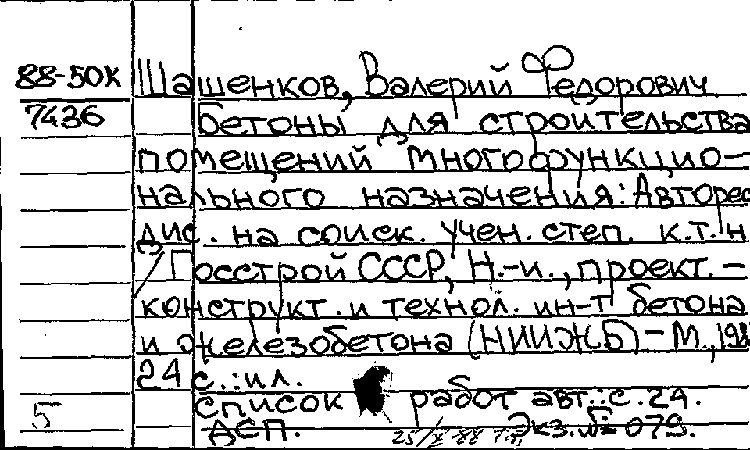 88-50К Шашенков, Валерий Федорович
7436 Бетоны для строительства
помещений многофункцио-
нального назначения: Автореф
дис. на соиск. учен. степ. к.т.н
/Госстрой СССР, Н.-и., проект.-
конструкт. и технол. ин-т бетона
и железобетона (НИИЖБ) - М., 198
24 с.: ил.
Список работ авт.: с. 24.
5 ДСП. Экз. № 079.